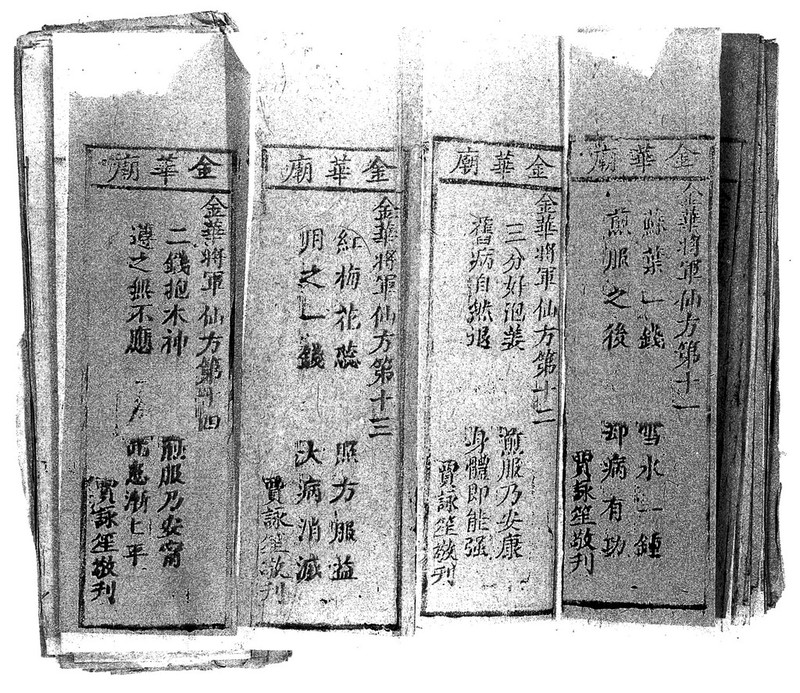 金華廟
金華將軍仙方第十一
蘇葉一錢　雪水一鍾
煎服之後　卻病有功
賈詠笙敬刊
金華廟
金華將軍仙方第十二
三分好泡姜　煎服乃安康
舊病自然退　身體即能强
賈詠笙敬刊
金華廟
金華將軍仙方第十三
紅梅花蕊　照方服益
用之一錢　大病消滅
賈詠笙敬刊
金華廟
金華將軍仙方第十四
二錢抱木神　煎服乃安甯
遵之無不應　患漸上平
賈詠笙敬刊